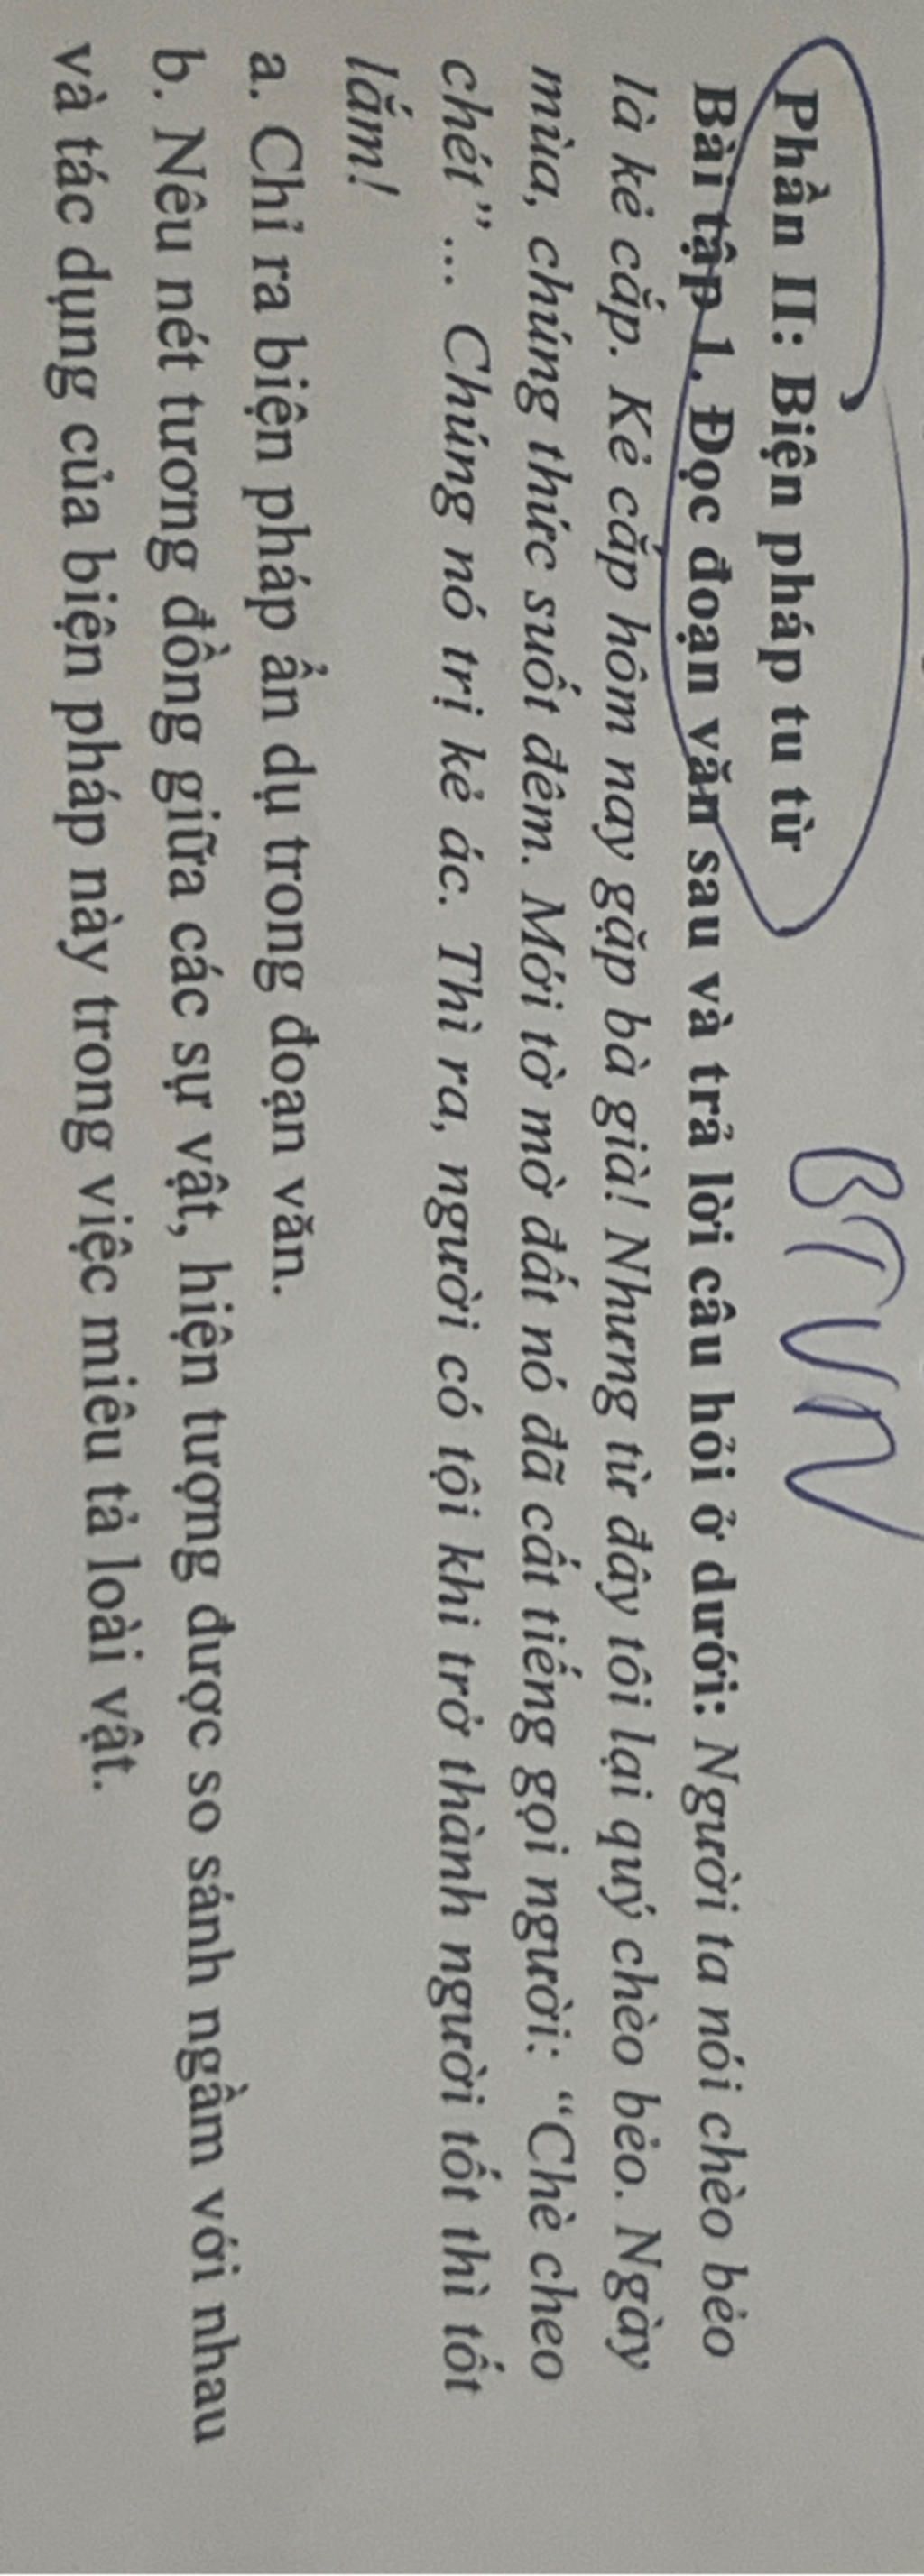 Phần II: Biện pháp tu từ
BTVN
Bài tập 1. Đọc đoạn văn sau và trả lời câu hỏi ở dưới: Người ta nói chèo bẻo
là kẻ cắp. Kẻ cắp hôm nay gặp bà già! Nhưng từ đây tôi lại quý chèo bẻo. Ngày
mùa, chúng thức suốt đêm. Mới tờ mờ đất nó đã cất tiếng gọi người: “Chè cheo
chét”... Chúng nó trị kẻ ác. Thì ra, người có tội khi trở thành người tốt thì tốt
lắm!
a. Chỉ ra biện pháp ẩn dụ trong đoạn văn.
b. Nêu nét tương đồng giữa các sự vật, hiện tượng được so sánh ngầm với nhau
và tác dụng của biện pháp này trong việc miêu tả loài vật.